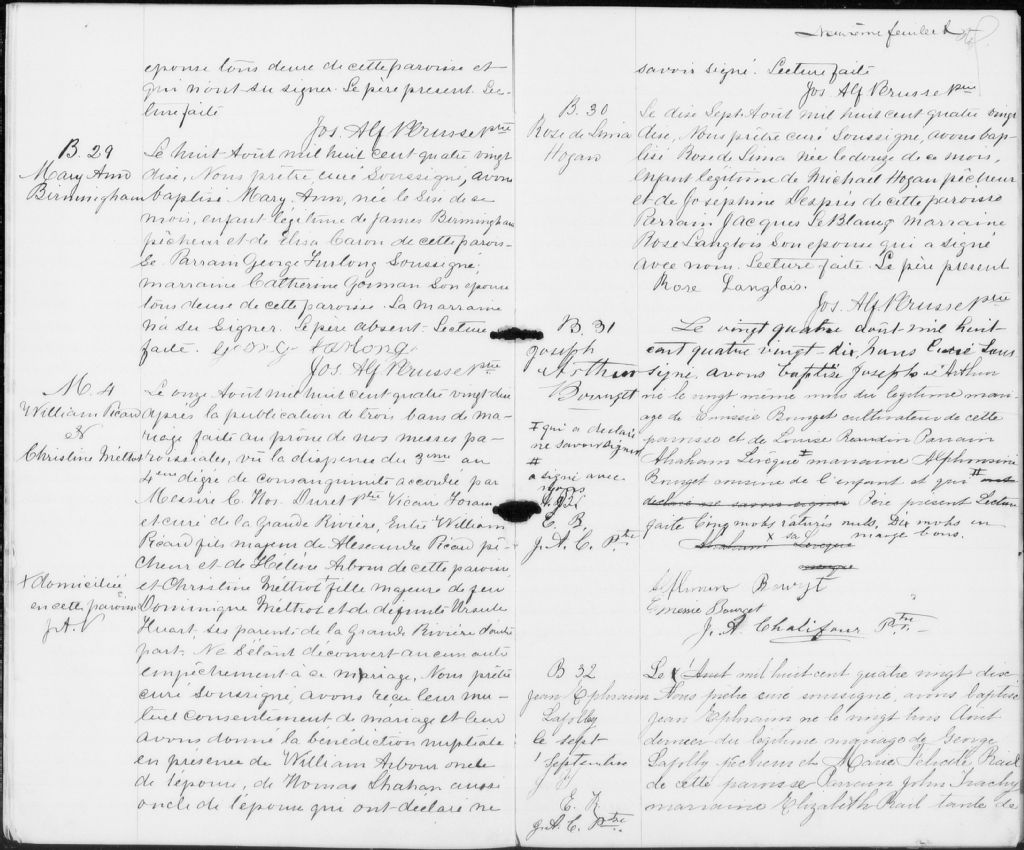 epouse tous deux de cette paroisse et
qui n'ont su signer. Le père présent. Lec-
ture faite
Jos. Alf Verusse ptre
B. 29
Mary Ann
Birmingham
Le huit Août mil huit cent quatre vingt
dise, Nous prêtre curé Soussigné, avons
baptisé Mary Ann, née le Sise de ce
mois, enfant légitime de James Birmingham
pêcheur et de Elisa Caron de cette parois-
se. Parrain George Furlong Soussigné,
marraine Catherine Gorman Son epouse
tous deux de cette paroisse. La marraine
n'a su signer. Le père absent. Lecture
faite. George Farlong
Jos. Alf Verusse ptre
M. 4
William Picard
&
Christine Méthot
Le onze Août mil huit cent quatre vingt dix
après la publication de trois bans de ma-
riage faite au prône de nos messes pa-
roissiales, vû la dispense du 3ème au
4ème dégré de consanguinité accordée par
Messire C. Nos. Duret ptre Vicaire Forain
et curé de la Grande Rivière, Entre William
Picard fils majeur de Alexandre Picard pê-
cheur et de Hélène Arbour de cette paroisse
et Christine Méthot + fille majeure de feu
Dominique Méthot et de défunte Ursule
Huart, ses parents de la Grande Rivière d'autre
part. Ne s'étant découvert aucun autre
empêchement à ce mariage, Nous prêtre
curé Soussigné, avons reçu leur mu-
tuel consentement de mariage et leur
avons donné la bénédiction nuptiale
en présence de William Arbour oncle
de l'épouse, de Thomas Shahan aussi
oncle de l'epouse qui ont déclaré ne
+ domiciliée
en cette paroisse
J. A. V
Neuvième feuillet
savoir signé. Lecture faite
Jos. Alf Verusse ptre
B. 30
Rose de Lima
Hogan
Le dise Sept Août mil huit cent quatre vingt
dise, Nous prêtre curé Soussigné, avons bap-
tisé Rose de Lima née le douze de ce mois,
enfant légitime de Michael Hogan pêcheur
et de Joséphine Després de cette paroisse
Parrain Jacques LeBlancq marraine
Rose Langlois Son epouse qui a signé
avec nous. Lecture faite. Le père present
Rose Langlois.
Jos. Alf Verusse ptre
B. 31
Joseph
Arthur
Bourget
Le vingt quatre août mil huit
cent quatre vingt-dix, nous Curé sous
signé, avons baptisé Joseph Arthur
né le vingt même mois du légitime mari-
age de Bourget cultivateur de cette
paroisse et de Louise Beaudin Parrain
Abraham Lévèque ‡ marraine Alphonsine
Bourget cousine de l'enfant et qui # ont
déclaré ne savoir signer Père présent Lecture
faite Cinq mots raturés nuls. Dix mots en
marge bons.
‡ qui a déclaré
ne savoir signer
#
a signé avec
nous
E. B.
J. A. C. Ptre
Bourget
Bourget
J. A. Chalifour Ptre
B 32
Jean Ephraim
Lafolly
le sept
Septembre
J. A. C. Ptre
Le Août mil huit cent quatre vingt dix
Nous prêtre curé soussigné, avons baptisé
Jean Ephraim né le vingt trois Août
dernier du légitime mariage de George
Lafolly pêcheur et Marie Félicité Rail
de cette paroisse Parrain John Trachy
marraine Elizabeth Rail tante de